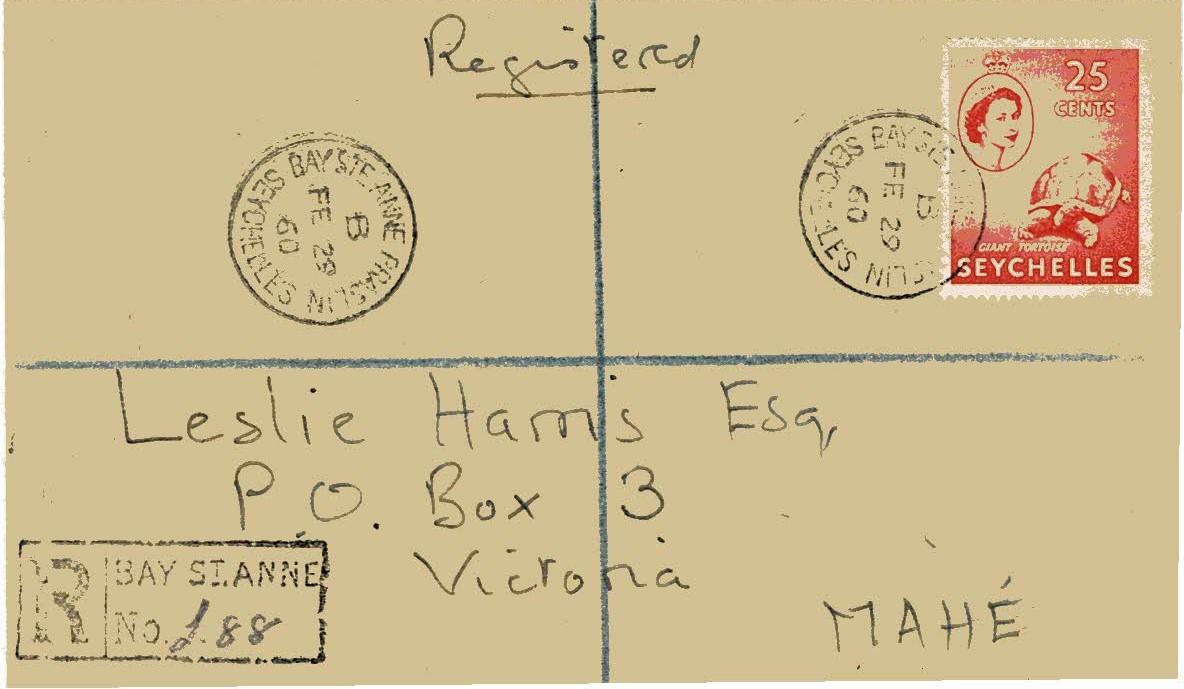 Registered
25
CENTS
GIANT TORTOISE
SEYCHELLES
BAY STE ANNE PRASLIN SEYCHELLES
B
FE 29
60
BAY STE
B
FE 29
60
Leslie Harris Esq,
P.O. Box 3
Victoria
MAHÉ
R
BAY ST. ANNE
No. 188